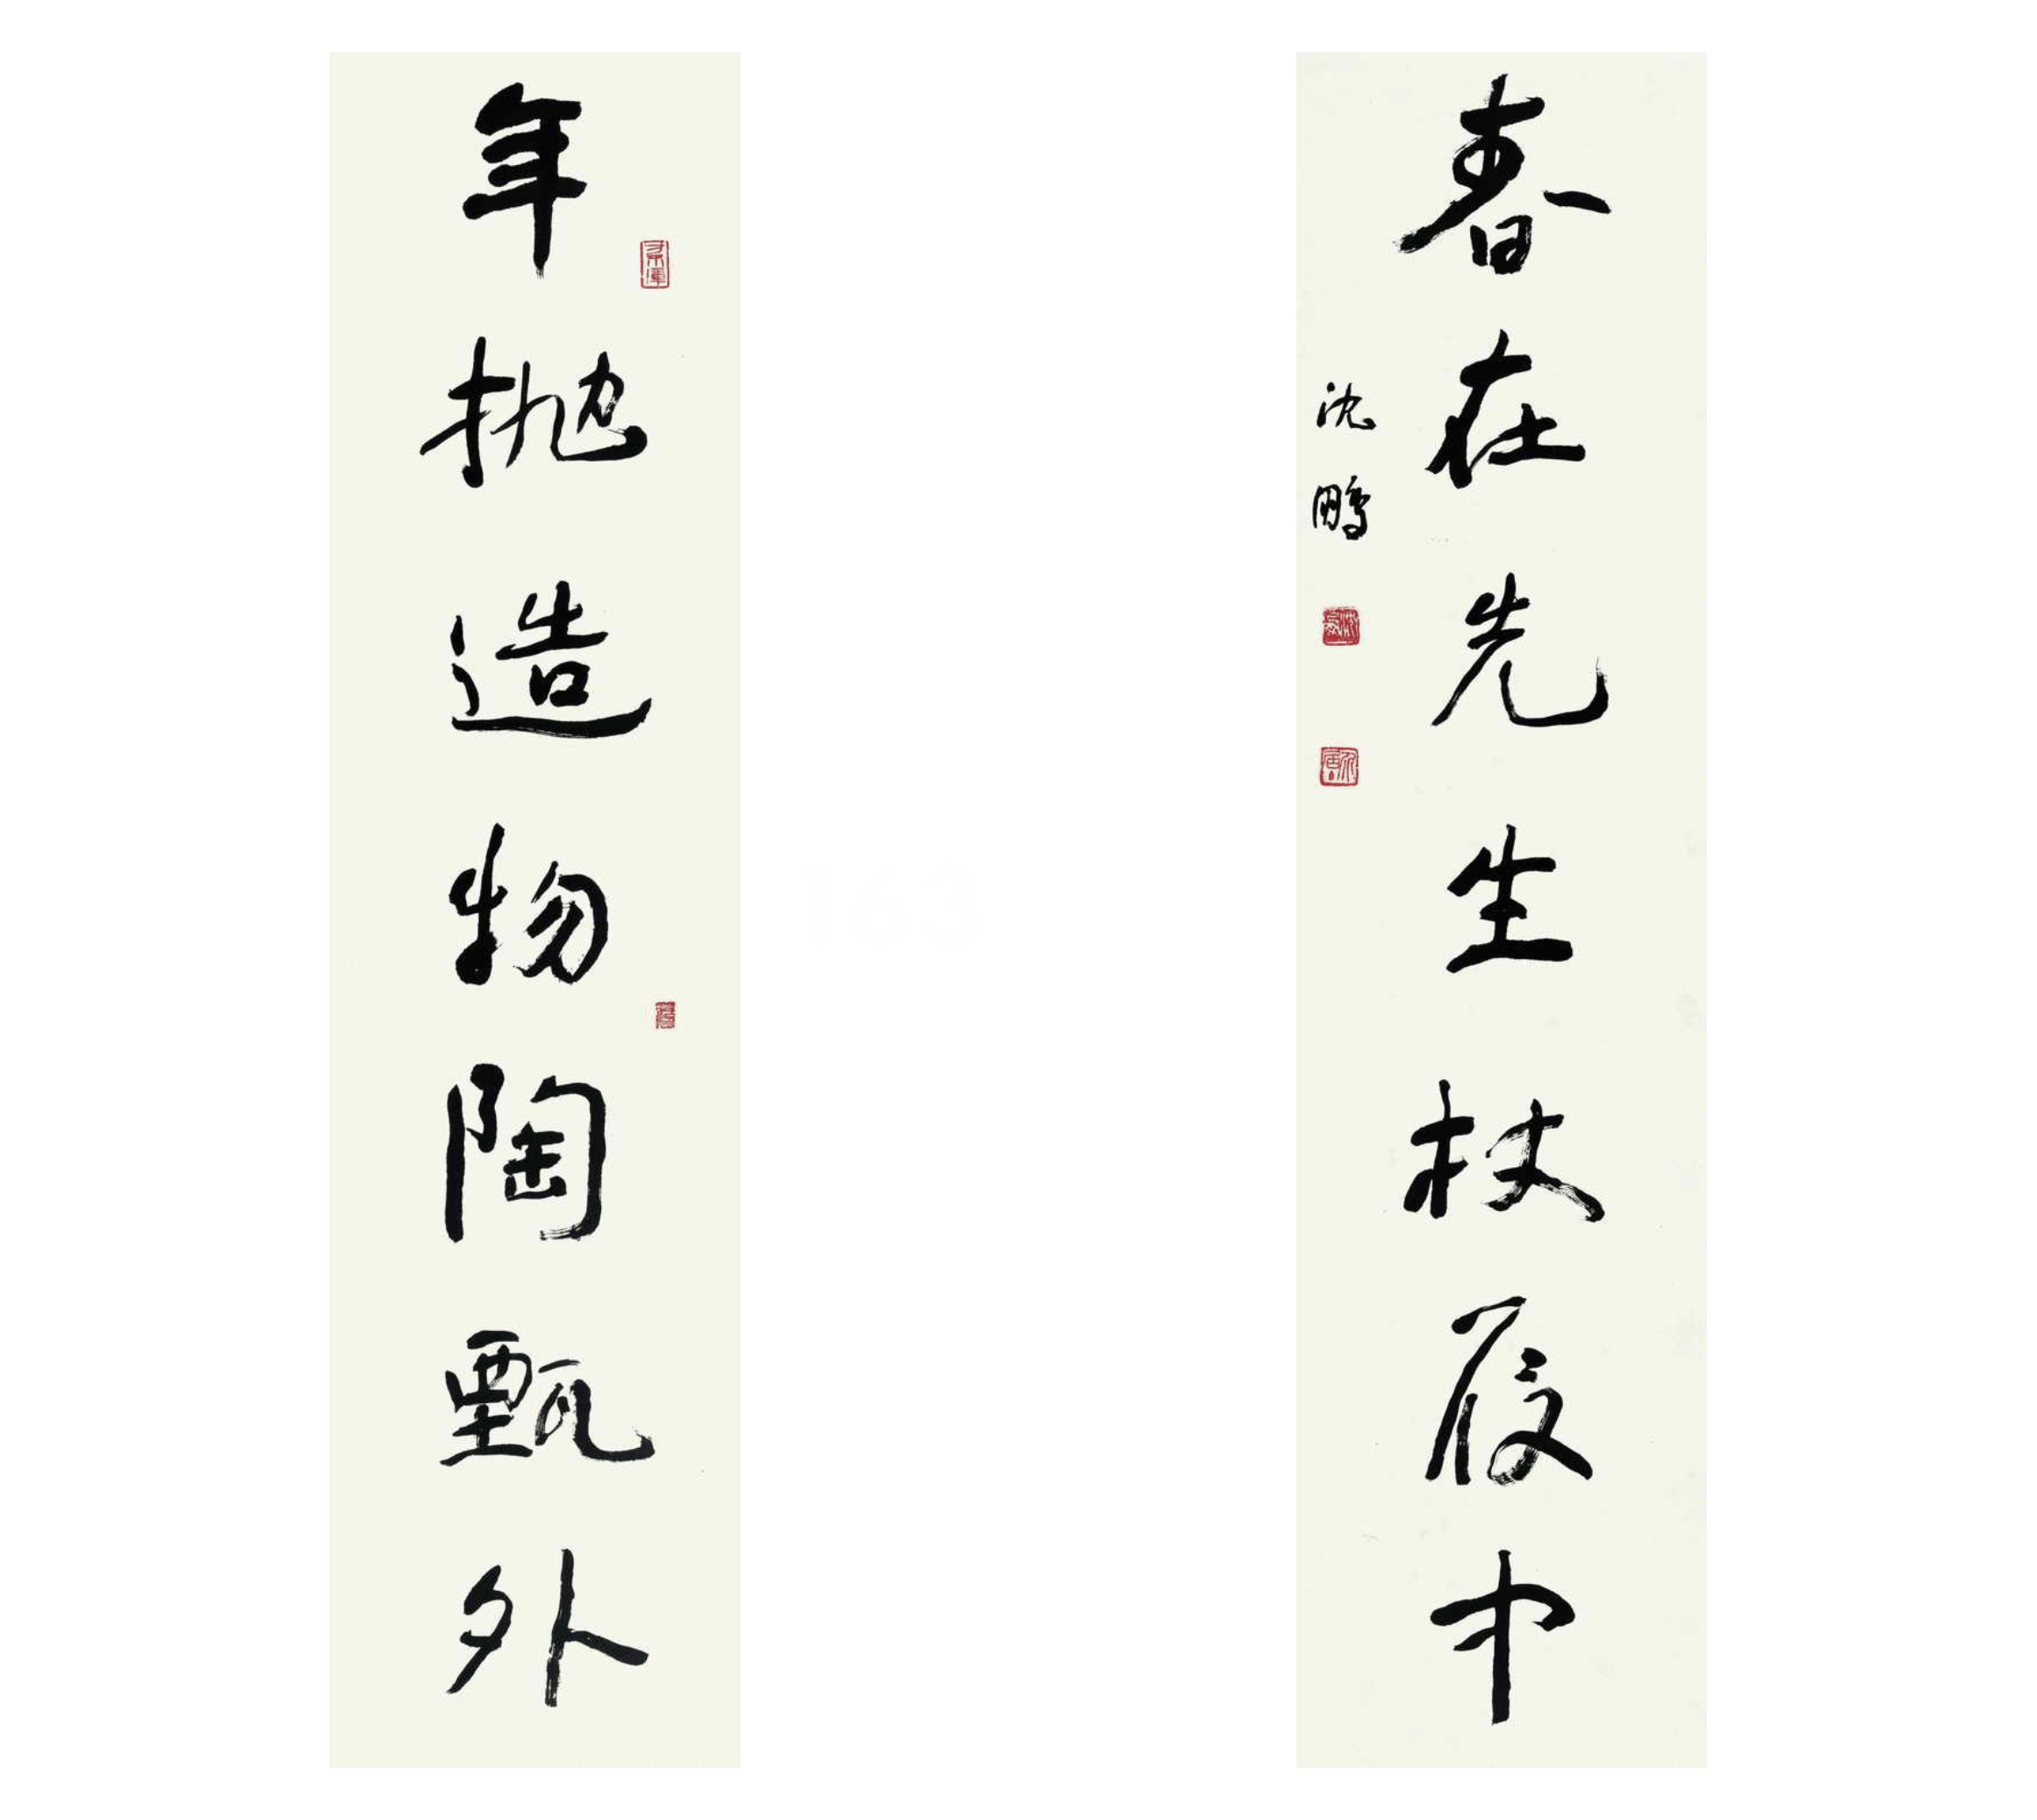 年抛造物陶甄外
春在先生杖履中
沈鵬